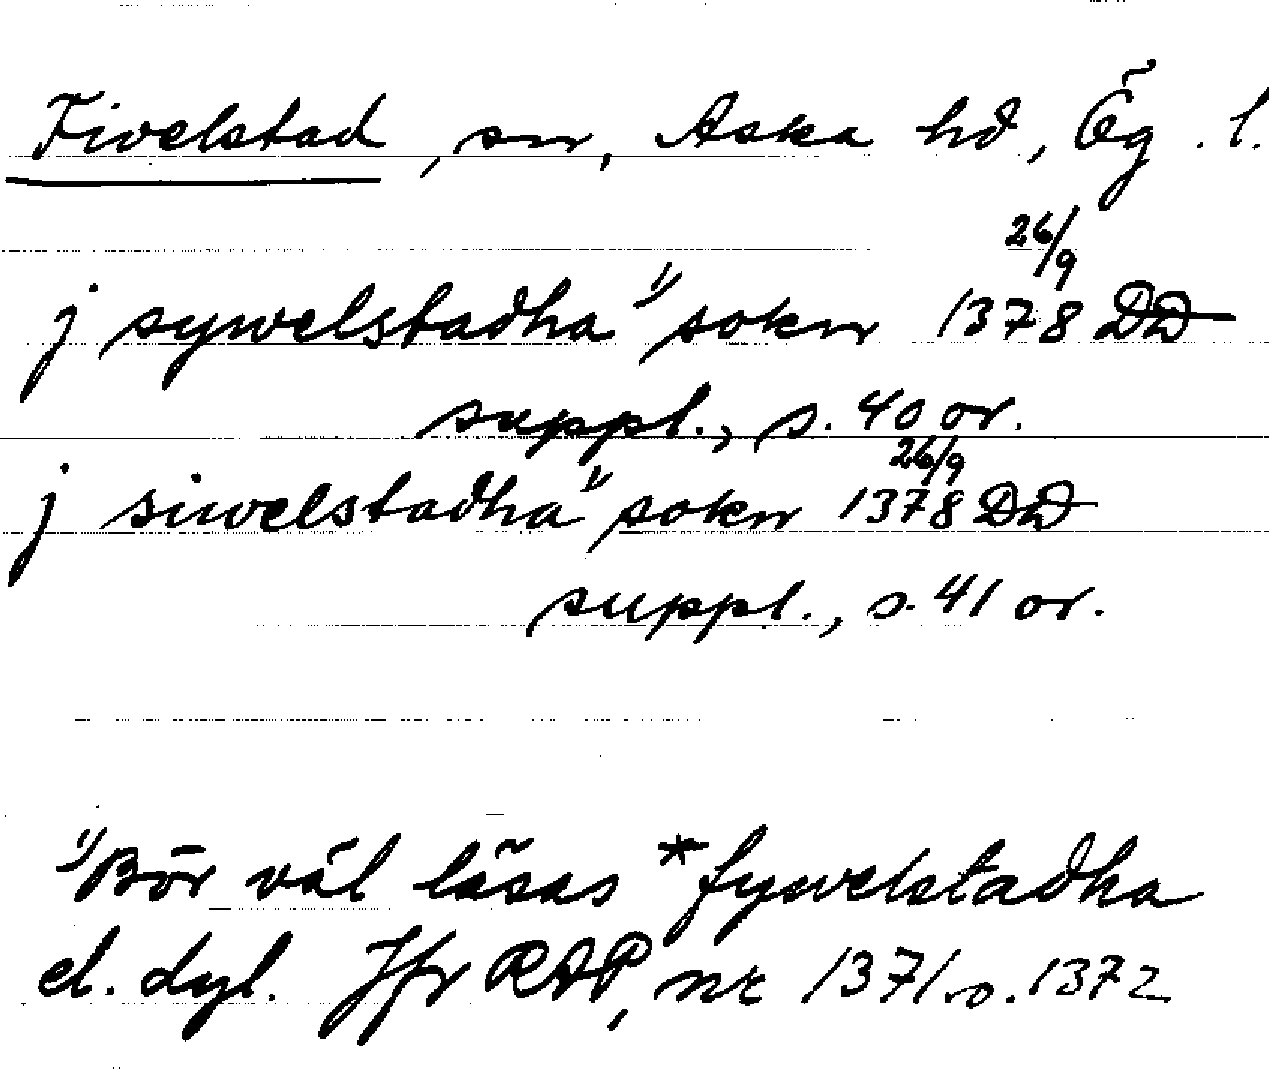 Fivelstad, sn, Aska hd, Ög. l.
26/9
j sywelstadha 1) sokn 1378 DD
suppl., s. 40 or.
26/9
j siwelstadha 1) sokn 1378 DD
suppl., s. 41 or.
1) Bör väl läsas *fywelstadha
el. dyl. Jfr RAP, nr 1371 o. 1372